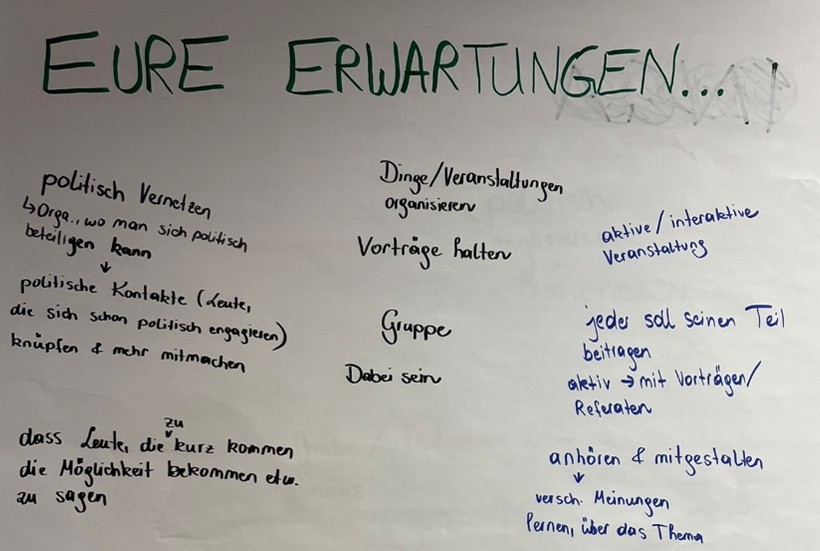 EURE ERWARTUNGEN...!
politisch Vernetzen
↳Orga., wo man sich politisch
beteiligen kann
↓
politische Kontakte (Leute,
die sich schon politisch engagieren)
knüpfen & mehr mitmachen
dass Leute, die zu kurz kommen
die Möglichkeit bekommen etw.
zu sagen
Dinge/Veranstaltungen
organisieren
Vorträge halten
Gruppe
Dabei sein
aktive/interaktive
Veranstaltung
jeder soll seinen Teil
beitragen
aktiv → mit Vorträgen/
Referaten
anhören & mitgestalten
↓
versch. Meinungen
lernen, über das Thema